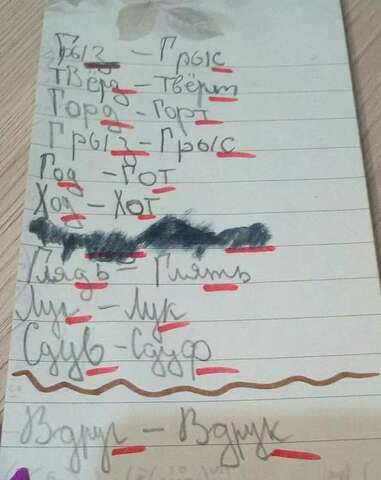 Грыз - Грыс
Твёрд - Твёрт
Горд - Горт
Грыз - Грыс
Год - Гот
Ход - Хот
Глядь - Глять
Луг - Лук
Сдув - Сдуф
Вдруг - Вдрук